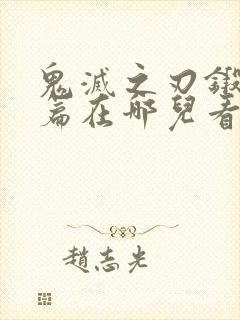 鬼滅之刃鍛
篇在哪兒看
趙志光